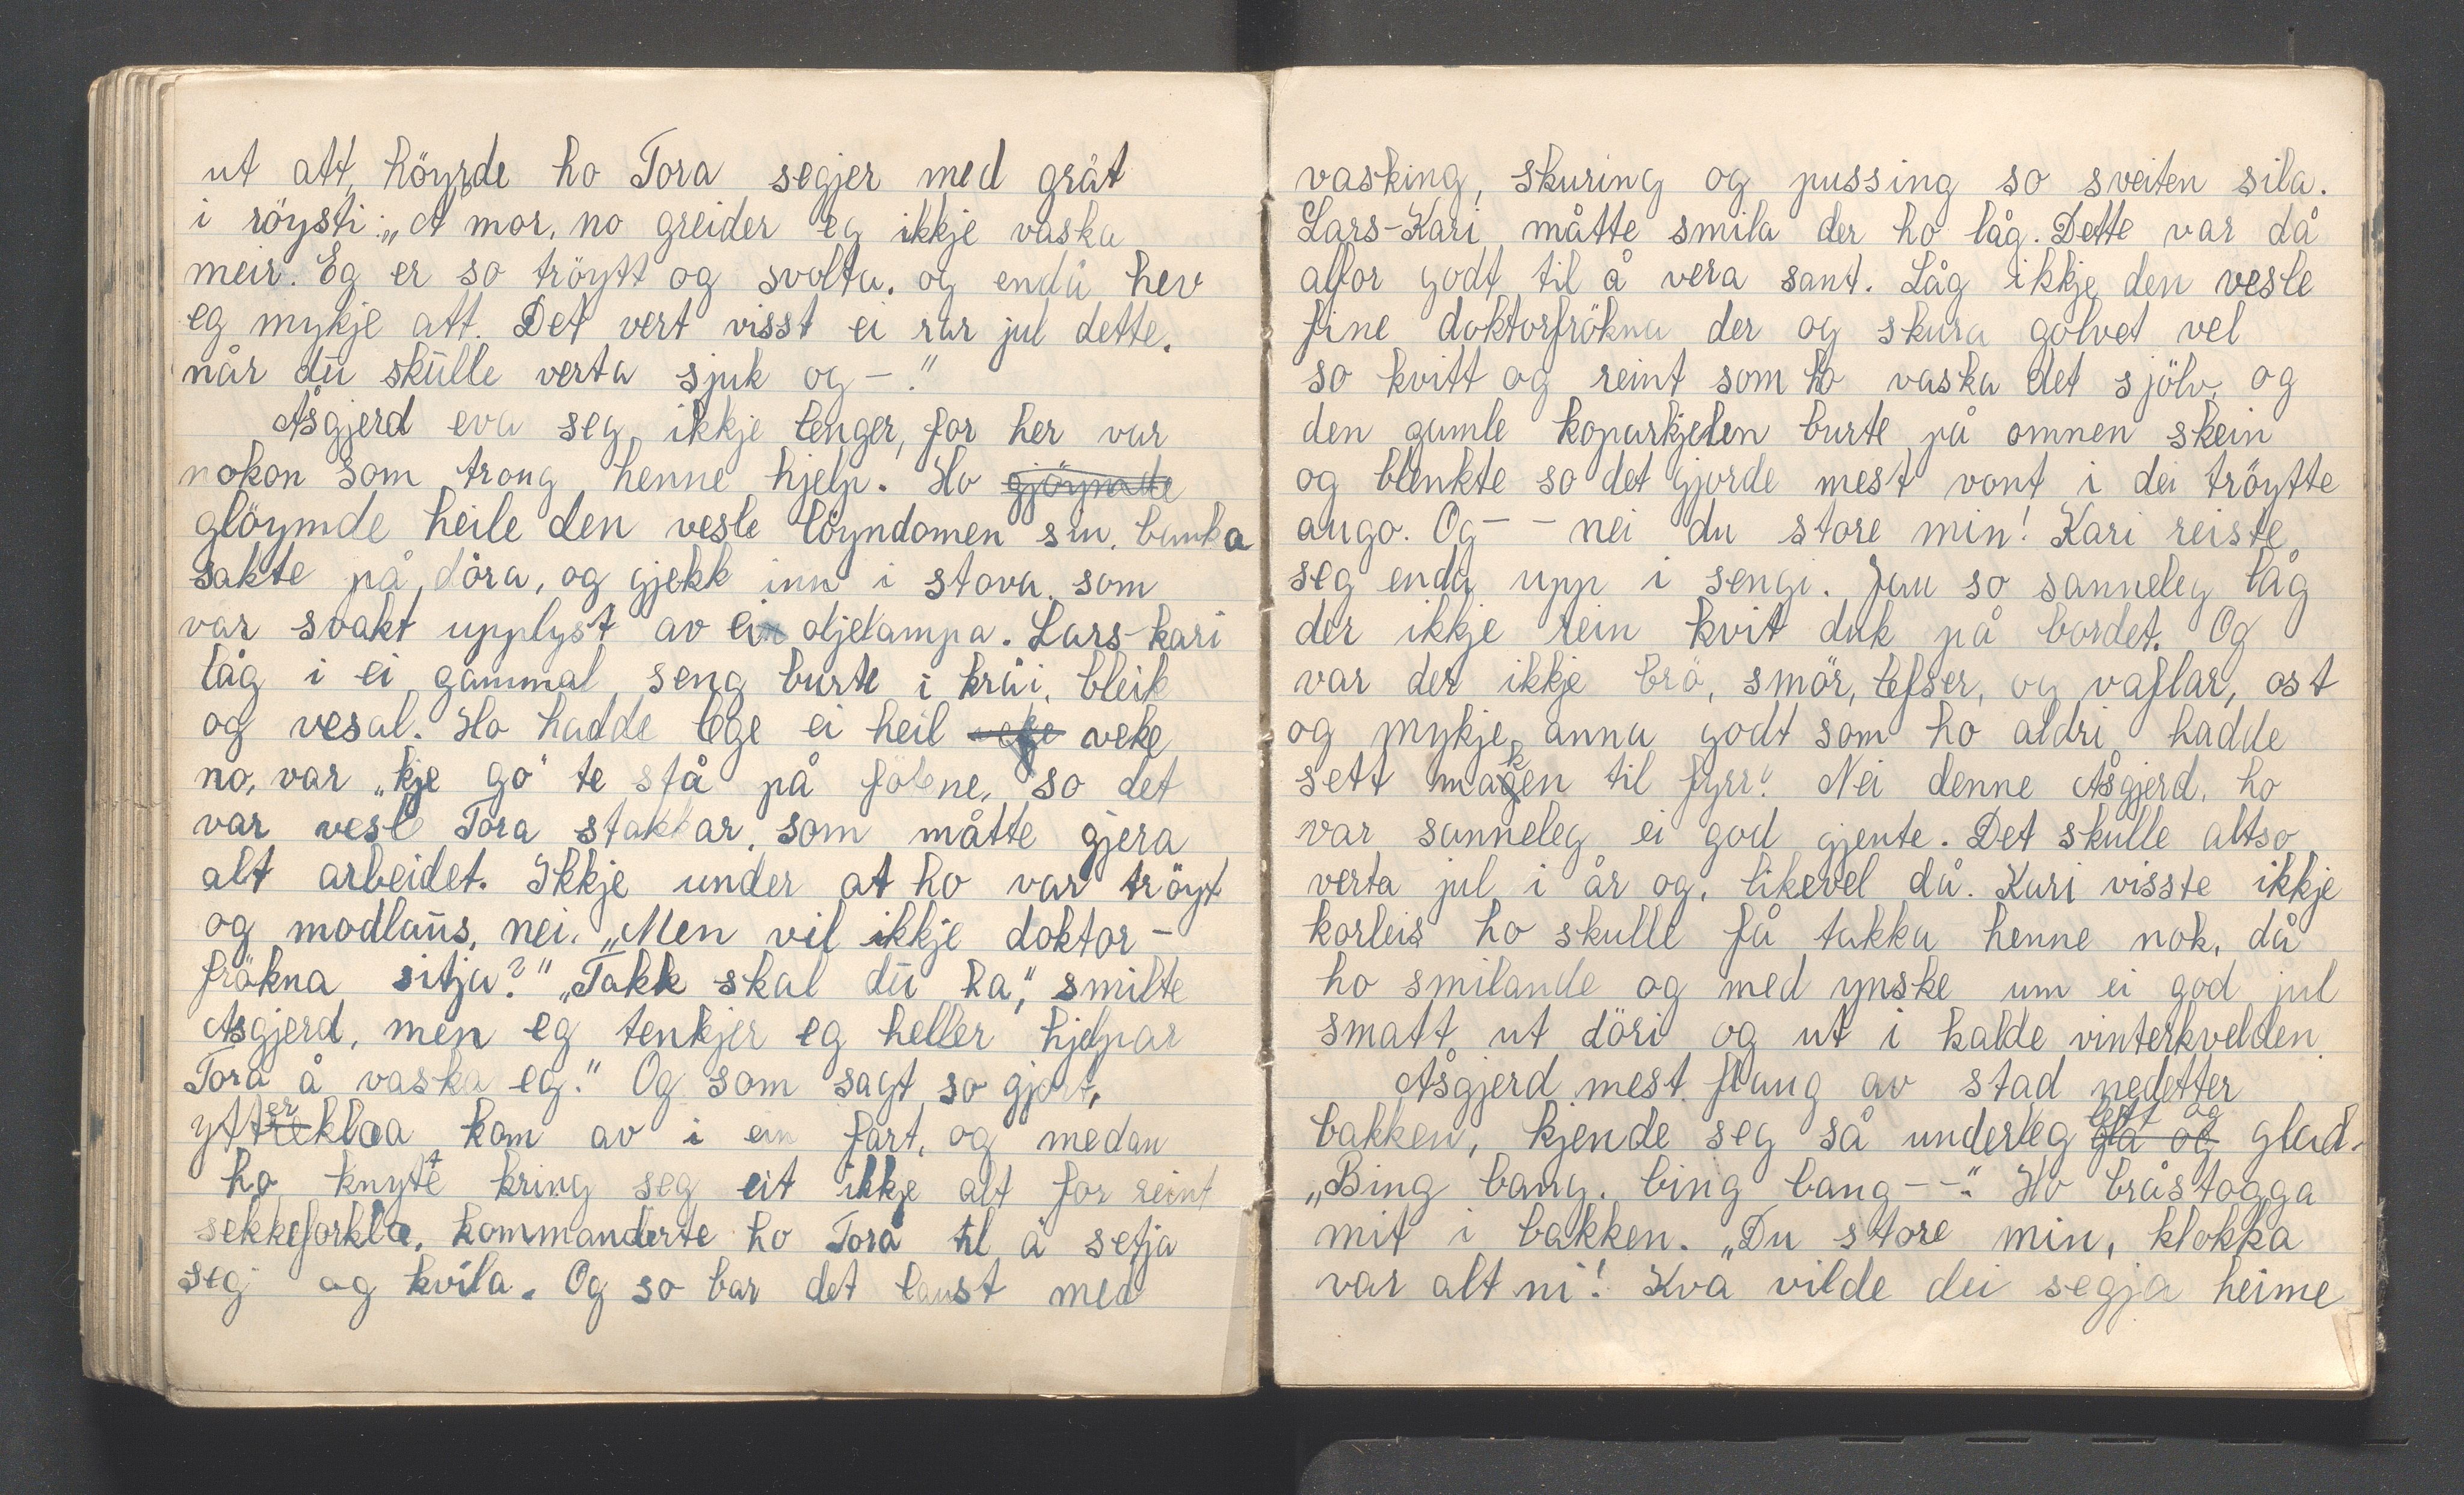 ut att, höyrde ho Tora segjer med gråt
i röysti: „Å mor, no greider eg ikkje vaska
meir. Eg er so tröytt og svolta, og endå hev
eg mykje att. Det vert visst ei rar jul dette,
når du skulle verta sjuk og –."
Åsgjerd eva seg ikkje lenger, for her var
nokon som trong henne hjelp. Ho
glöymde heile den vesle löyndomen sin, banka
sakte på döra, og gjekk inn i stova, som
var svakt upplyst av ei oljelampa. Lars-kari
låg i ei gammal seng burte i kråi, bleik
og vesal. Ho hadde lege ei heil veke
no, var „kje go" te stå på föt̶e̶ne, so det
var vesle Tora stakkar, som måtte gjera
alt arbeidet. Ikkje under at ho var tröyt
og modlaus, nei. „Men vil ikkje doktor-
frökna sitja?" „Takk skal du ha", smilte
Åsgjerd, men eg tenkjer eg heller hjelpar
Tora å vaska eg." Og som sagt so gjort,
ytterklæa kom av i ein fart, og medan
ho knytte kring seg eit ikkje alt for reint
sekkeforklæ, kommanderte ho Tora til å setja
seg og kvila. Og so bar det laust med
vasking, skuring og pussing so sveiten sila.
Lars-Kari måtte smila der ho låg. Dette var då
alfor godt til å vera sant. Låg ikkje den vesle
fine doktorfrökna der og skura golvet vel
so kvitt og reint som ho vaska det sjölv, og
den gamle koparkjelen burte på omnen skein
og blenkte so det gjorde mest vont i dei tröytte
augo. Og – – nei du store min! Kari reiste
seg enda upp i sengi. Jau so sanneleg låg
der ikkje rein kvit duk på bordet. Og
var der ikkje brö, smör, lefser, og vaflar, ost
og mykje anna godt som ho aldri hadde
sett maken til fyrr! Nei denne Åsgjerd, ho
var sanneleg ei god gjente. Det skulle altso
verta jul i år og, likevel då. Kari visste ikkje
korleis ho skulle få takka henne nok, då
ho smilande og med ynske um ei god jul
smatt ut döri og ut i kalde vinterkvelden.
Åsgjerd mest flaug av stad nedetter
bakken, kjende seg så underleg lett og glad.
„Bing bang, bing bang – –." Ho bråstogga
mit i bakken. „Du store min, klokka
var alt ni! Kva vilde dei segja heime